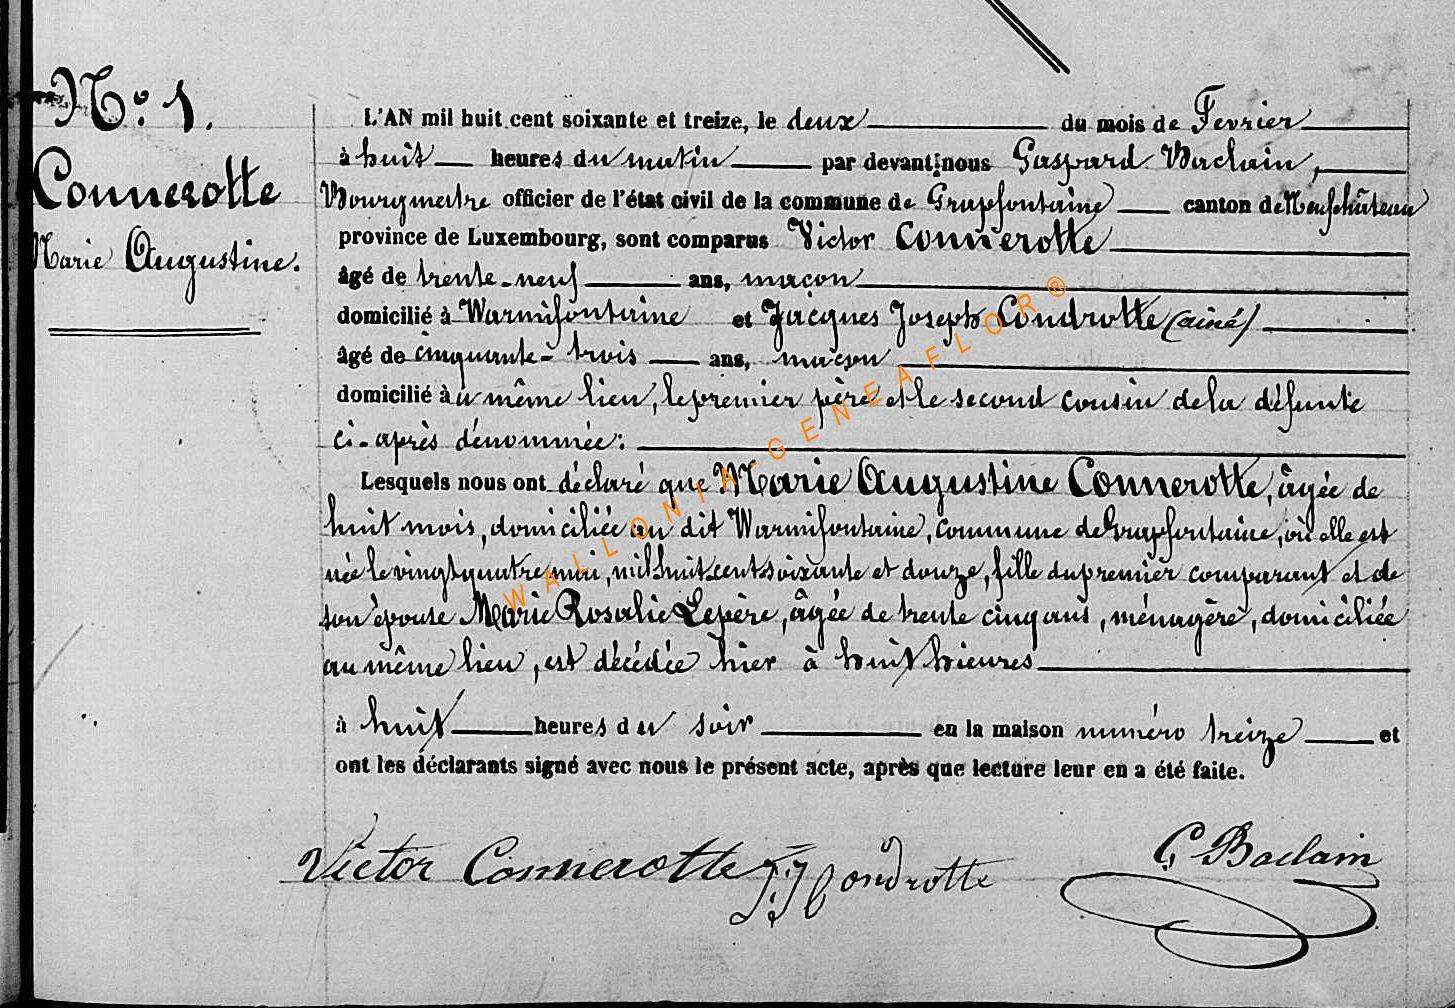 N° 1.
Connerotte
Marie Augustine.
L'AN mil huit cent soixante et treize, le deux du mois de Fevrier
à huit heures du matin par devant nous Gaspard Baclain,
Bourgmestre officier de l'état civil de la commune de Grapfontaine canton de Neufchâteau
province de Luxembourg, sont comparus Victor Connerotte
âgé de trente-neuf ans, maçon
domicilié à Warmifontaine et Jacques Joseph Condrotte (ainé)
âgé de cinquante-trois ans, maçon
domicilié au même lieu, le premier père et le second cousin de la défunte
ci-après dénommée:
Lesquels nous ont déclaré que Marie Augustine Connerotte, âgée de
huit mois, domiciliée au dit Warmifontaine, commune de Grapfontaine, où elle est
née le vingt quatre mai, mil huit cent soixante et douze, fille du premier comparant et de
son épouse Marie Rosalie Lepère, âgée de trente cinq ans, ménagère, domiciliée
au même lieu, est décédée hier à huit heures
à huit heures du soir en la maison numéro treize et
ont les déclarants signé avec nous le présent acte, après que lecture leur en a été faite.
Victor Connerotte J.J Condrotte G Baclain
WALLONIA-GENEAFLOR®